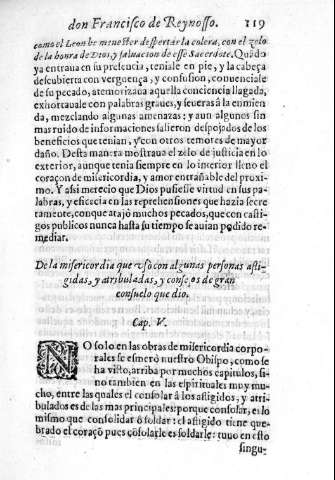 don Francisco de Reynosso. 119
como el Leon he menester despertar la colera, con el zelo
de la honra de Dios, y saluacion de esse Sacerdote. Quãdo
ya entraua en su presencia, teniale en pie, y la cabeça
descubierta con verguença, y confusion, conuenciale
de su pecado, atemorizaua aquella conciencia llagada,
exhortauale con palabras graues, y seueras à la enmien
da, mezclando algunas amenazas: y aun algunos sin
mas ruido de informaciones salieron despojados de los
beneficios que tenian, y con otros temores de mayor
daño. Desta manera mostraua el zelo de justicia en lo
exterior, aunque tenia siempre en lo interior lleno el
coraçon de misericordia, y amor entrañable del proxi
mo. Y assi merecio que Dios pusiesse virtud en sus pa-
labras, y eficacia en las reprehensiones que hazia secre
tamente, con que atajò muchos pecados, que con casti-
gos publicos nunca hasta su tiempo se auian podido re-
mediar.
De la misericordia que vsò con algunas personas afli-
gidas, y atribuladas, y consejos de gran
consuelo que dio.
Cap. V.
NO solo en las obras de misericordia corpo-
rales se esmerò nuestro Obispo, como se
ha visto, arriba por muchos capitulos, si-
no tambien en las espirituales muy mu-
cho, entre las quales el consolar à los afligidos, y atri-
bulados es de las mas principales: porque consolar, es lo
mismo que consolidar ò soldar: el afligido tiene que-
brado el coraçõ pues cõsolarle es soldarle: tuuo en esto
singu-